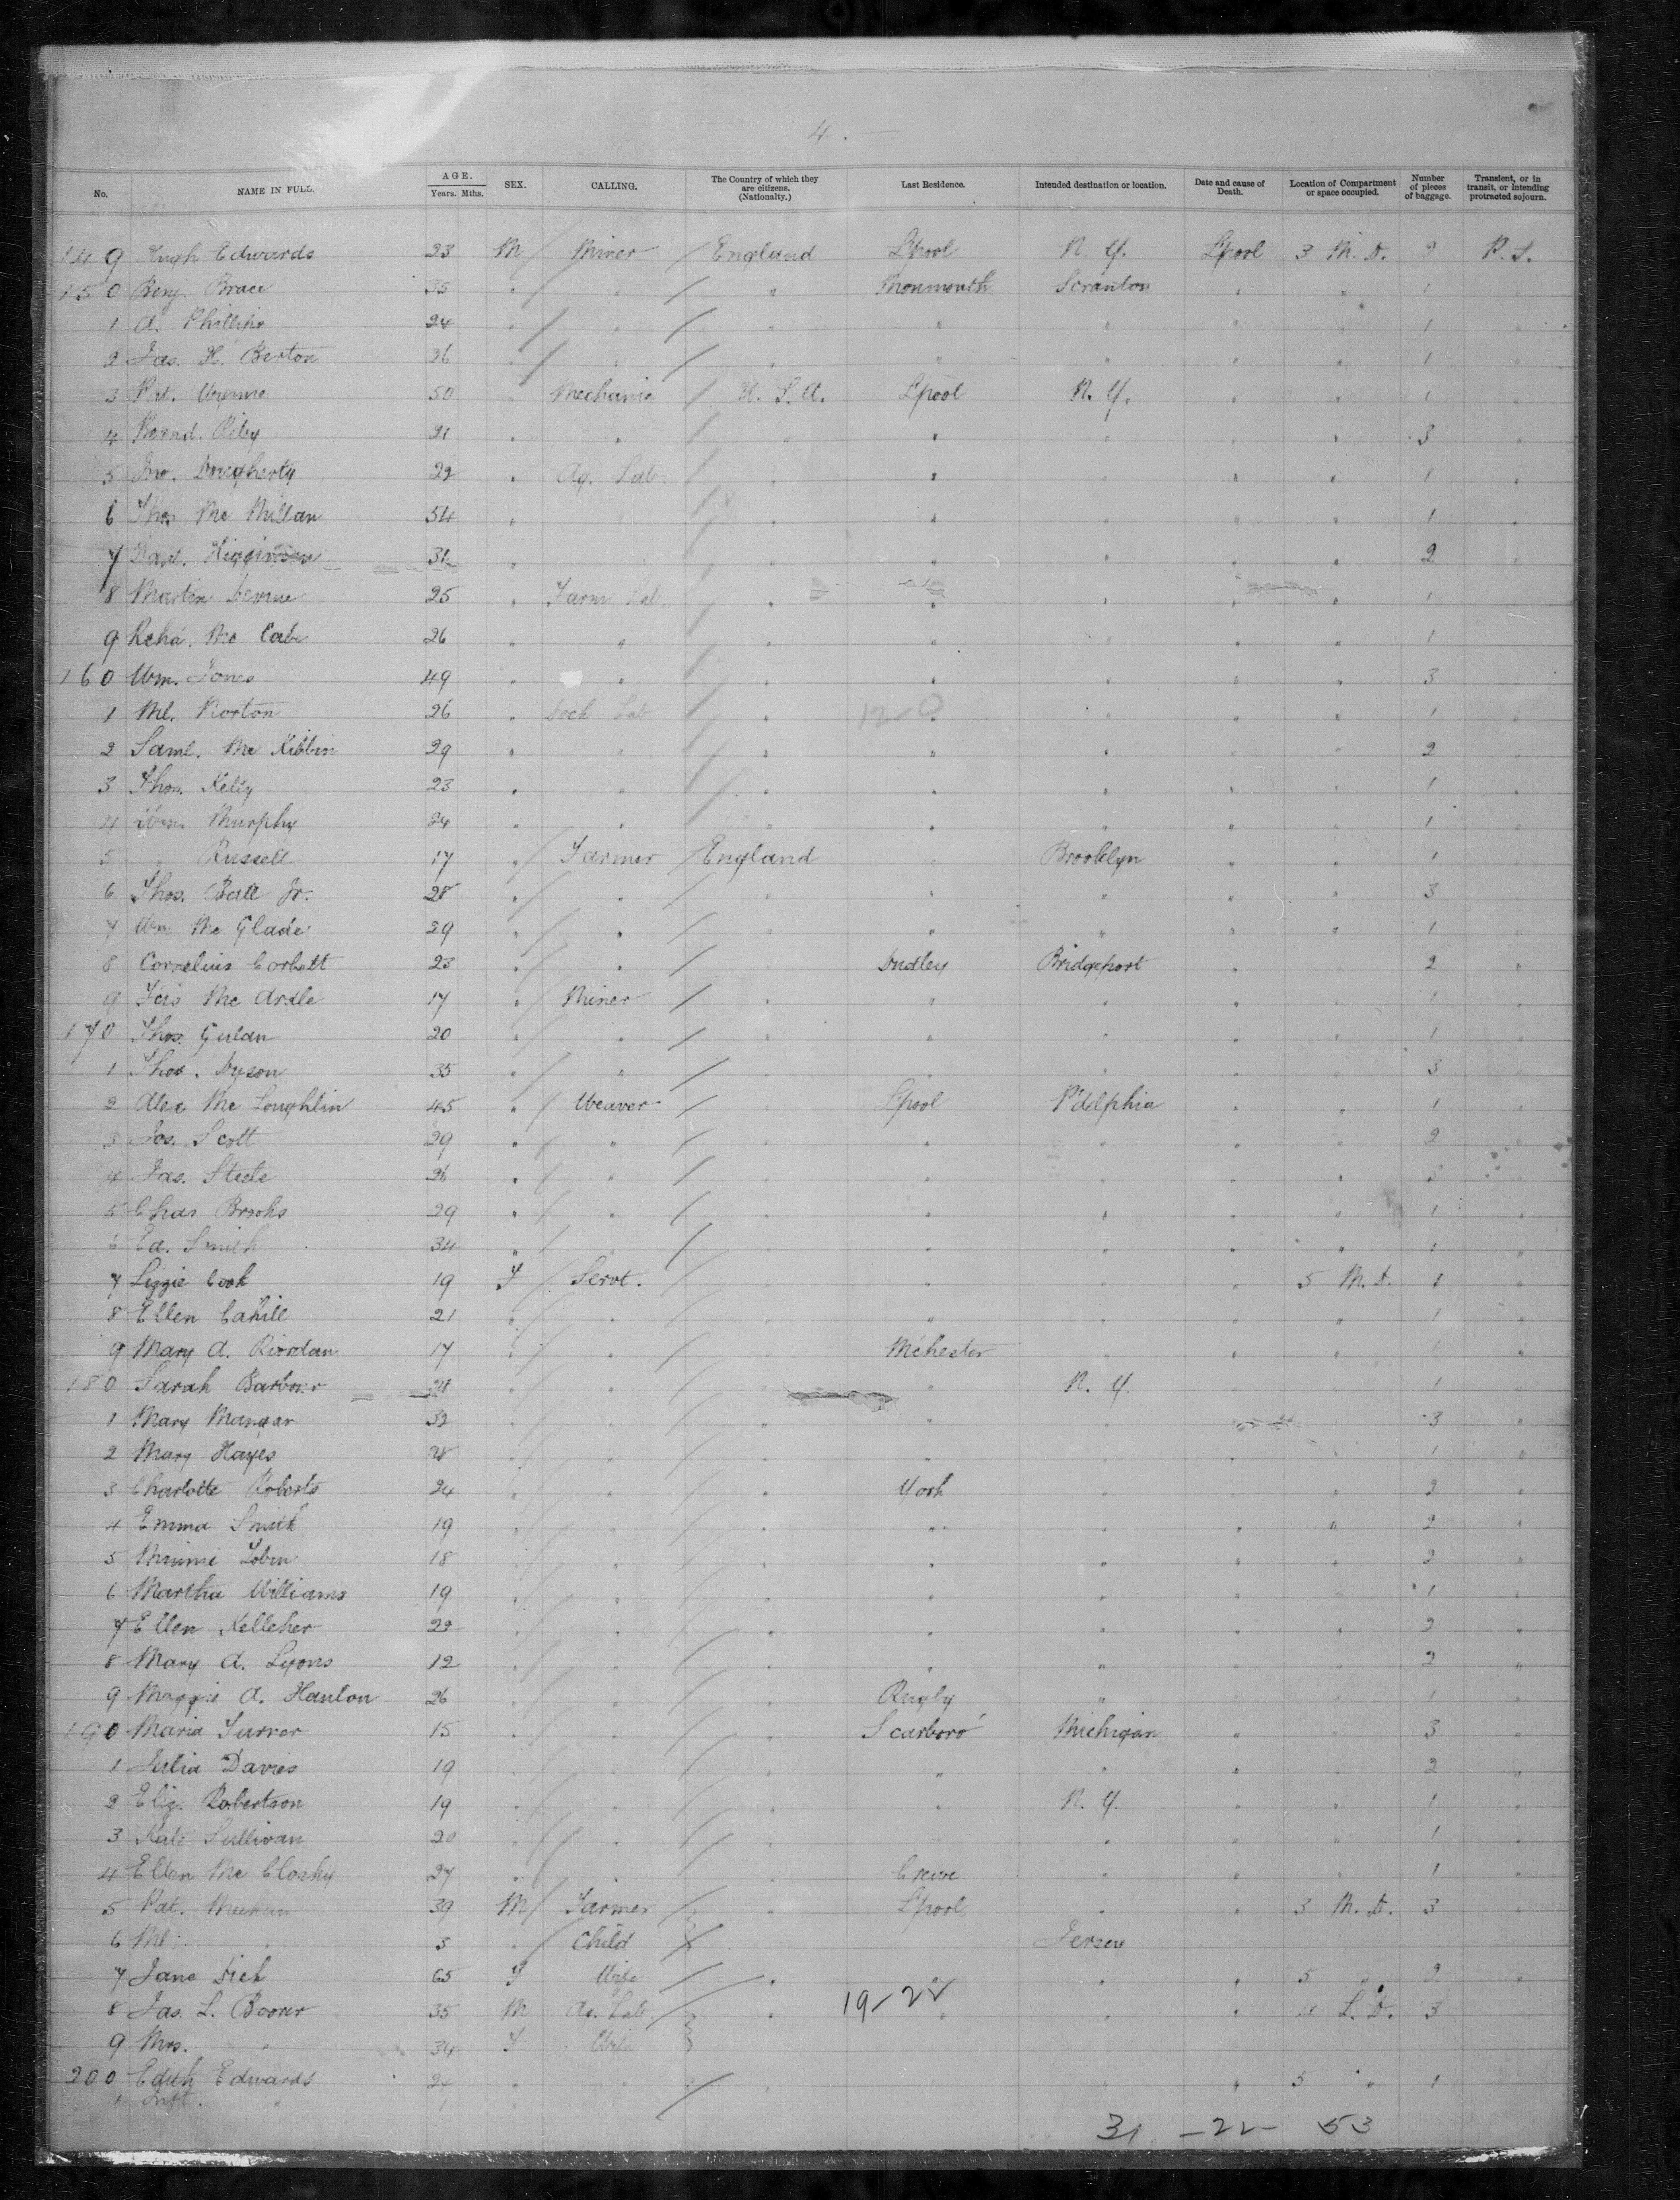 4. —
No. NAME IN FULL. AGE. Years. Mths. SEX. CALLING. The Country of which they are citizens. (Nationalty.) Last Residence. Intended destination or location. Date and cause of Death. Location of Compartment or space occupied. Number of pieces of baggage. Transient, or in transit, or intending protracted sojourn.
149 Hugh Edwards 23 M Miner England Lpool N. Y. Lpool 3 M. D. 2 P. S.
150 Benj. Brace 35 " " " Monmouth Scranton " " 1 "
1 A. Phillips 24 " " " " " " " 1 "
2 Jas. H. Berton 36 " " " " " " " 1 "
3 Pat. 50 Mechanic U. S. A. Lpool N. Y. " " 1 "
4 Bernd. Riley 21 " " " " " " " 3 "
5 Jno. Dougherty 22 " Ag. Lab. " " " " " 1 "
6 Thos Mc Millan 54 " " " " " " 1 "
7 Danl. 31 " " " " " " 2 "
8 Martin Devine 25 " Farm Lab. " " " " " 1 "
9 Richd. Mc Cabe 26 " " " " " " " 1 "
160 Wm. Jones 49 " " " " " " " 3 "
1 Ml. Norton 26 " Dock Lab " " " " " 1 "
12-0
2 Saml. Mc Kibbin 29 " " " " " " " 2 "
3 Thos. Kelly 23 " " " " " " " 1 "
4 Wm. Murphy 24 " " " " " " " 1 "
5 " Russell 17 " Farmer England " Brooklyn " " 1 "
6 Thos. Ball Jr. 28 " " " " " " " 3 "
7 Wm Mc Glade 29 " " " " " " " 1 "
8 Cornelius Corbett 23 " " " Dudley Bridgeport " " 2 "
9 Mc Ardle 17 " Miner " " " " " 1 "
170 Thos. 20 " " " " " " " 1 "
1 Thos. Dyson 35 " " " " " " " 3 "
2 Alex Mc Loughlin 45 " Weaver " Lpool P'delphia " " 1 "
3 Jos. Scott 29 " " " " " " " 2 "
4 Jas. Steele 26 " " " " " " " "
5 Chas Brooks 29 " " " " " " " 1 "
6 Ed. Smith 34 " " " " " " " 1 "
7 Lizzie Cook 19 F Servt. " " " " 5 M. D. 1 "
8 Ellen Cahill 21 " " " " " " " 1 "
9 Mary A. Riordan 17 " " " M'chester " " " 1 "
180 Sarah Barbour 21 " " " " N. Y. 1 "
1 Mary Mangan 32 " " " " " " " 3 "
2 Mary Hayes 28 " " " " " " " 1 "
3 Charlotte Roberts 24 " " " York " " " 2 "
4 Emma Smith 19 " " " " " " " 2 "
5 Minnie Tobin 18 " " " " " " " 2 "
6 Martha Williams 19 " " " " " " " 1 "
7 Ellen Kelleher 22 " " " " " " " 2 "
8 Mary A. Lyons 12 " " " " " " " 2 "
9 Maggie A. Hanlon 26 " " " Rugby " " " 1 "
190 Maria Turner 15 " " " Scarboro' Michigan " " 3 "
1 Julia Davies 19 " " " " " " " 2 "
2 Eliz. Robertson 19 " " " " N. Y. " " 1 "
3 Kate Sullivan 20 " " " " " " " 1 "
4 Ellen Mc Closky 27 " " " Crewe " " " 1 "
5 Pat. Meehan 39 M Farmer " Lpool " " 3 M. D. 3 "
6 Ml. " 3 " Child " Jersey
7 Jane Dick 65 F Wife " " " " 5 " 2 "
19-22
8 Jas. L. Boorer 35 M Ag. Lab " " " " L. D. 3 "
9 Mrs. " 34 F Wife
200 Edith Edwards 24 " " " " 5 " 1 "
1 Inft. "
31 - 22 - 53